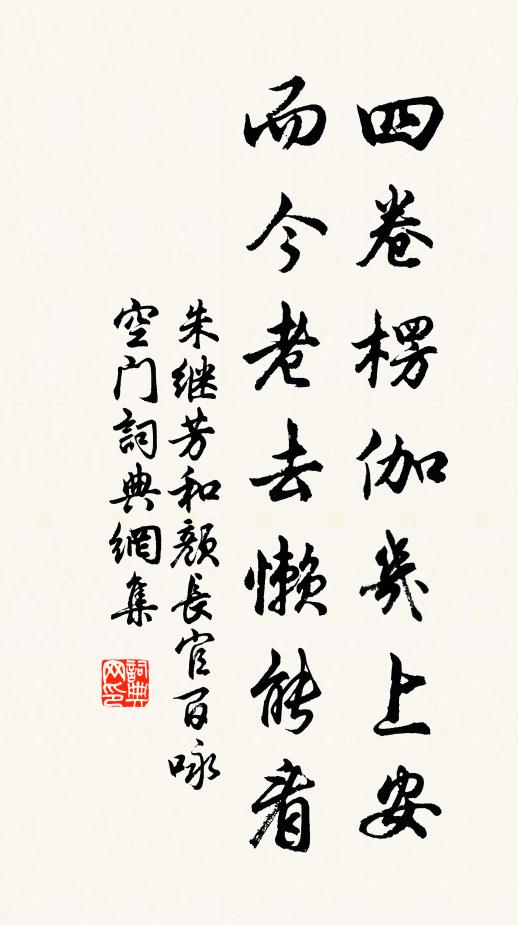 四卷楞伽几上安
而今老去懒能看
朱继芳和颜长官百咏
空门詞典網集
詞典网印